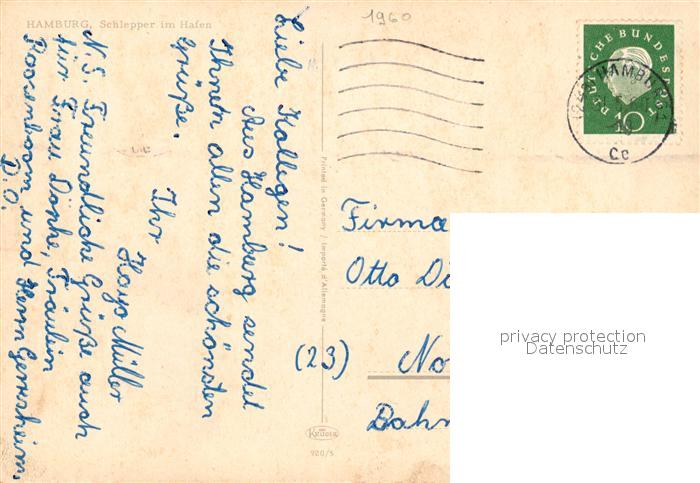 HAMBURG, Schlepper im Hafen
1960
Liebe Kollegen!
Aus Hamburg sendet
Ihnen allen die schönsten
Grüße.
Ihr
Hayo Müller
N.S. Freundliche Grüße auch
für Frau Dönhe, Fräulein
und Herrn Gerresheim.
D.O.
Printed in Germany / Importé d'Allemagne
KRÜGER
920/5
DEUTSCHE BUNDESPOST
10
HAMBURG
Cc
Firma
Otto Di
(23) No
Bahn
privacy protection
Datenschutz